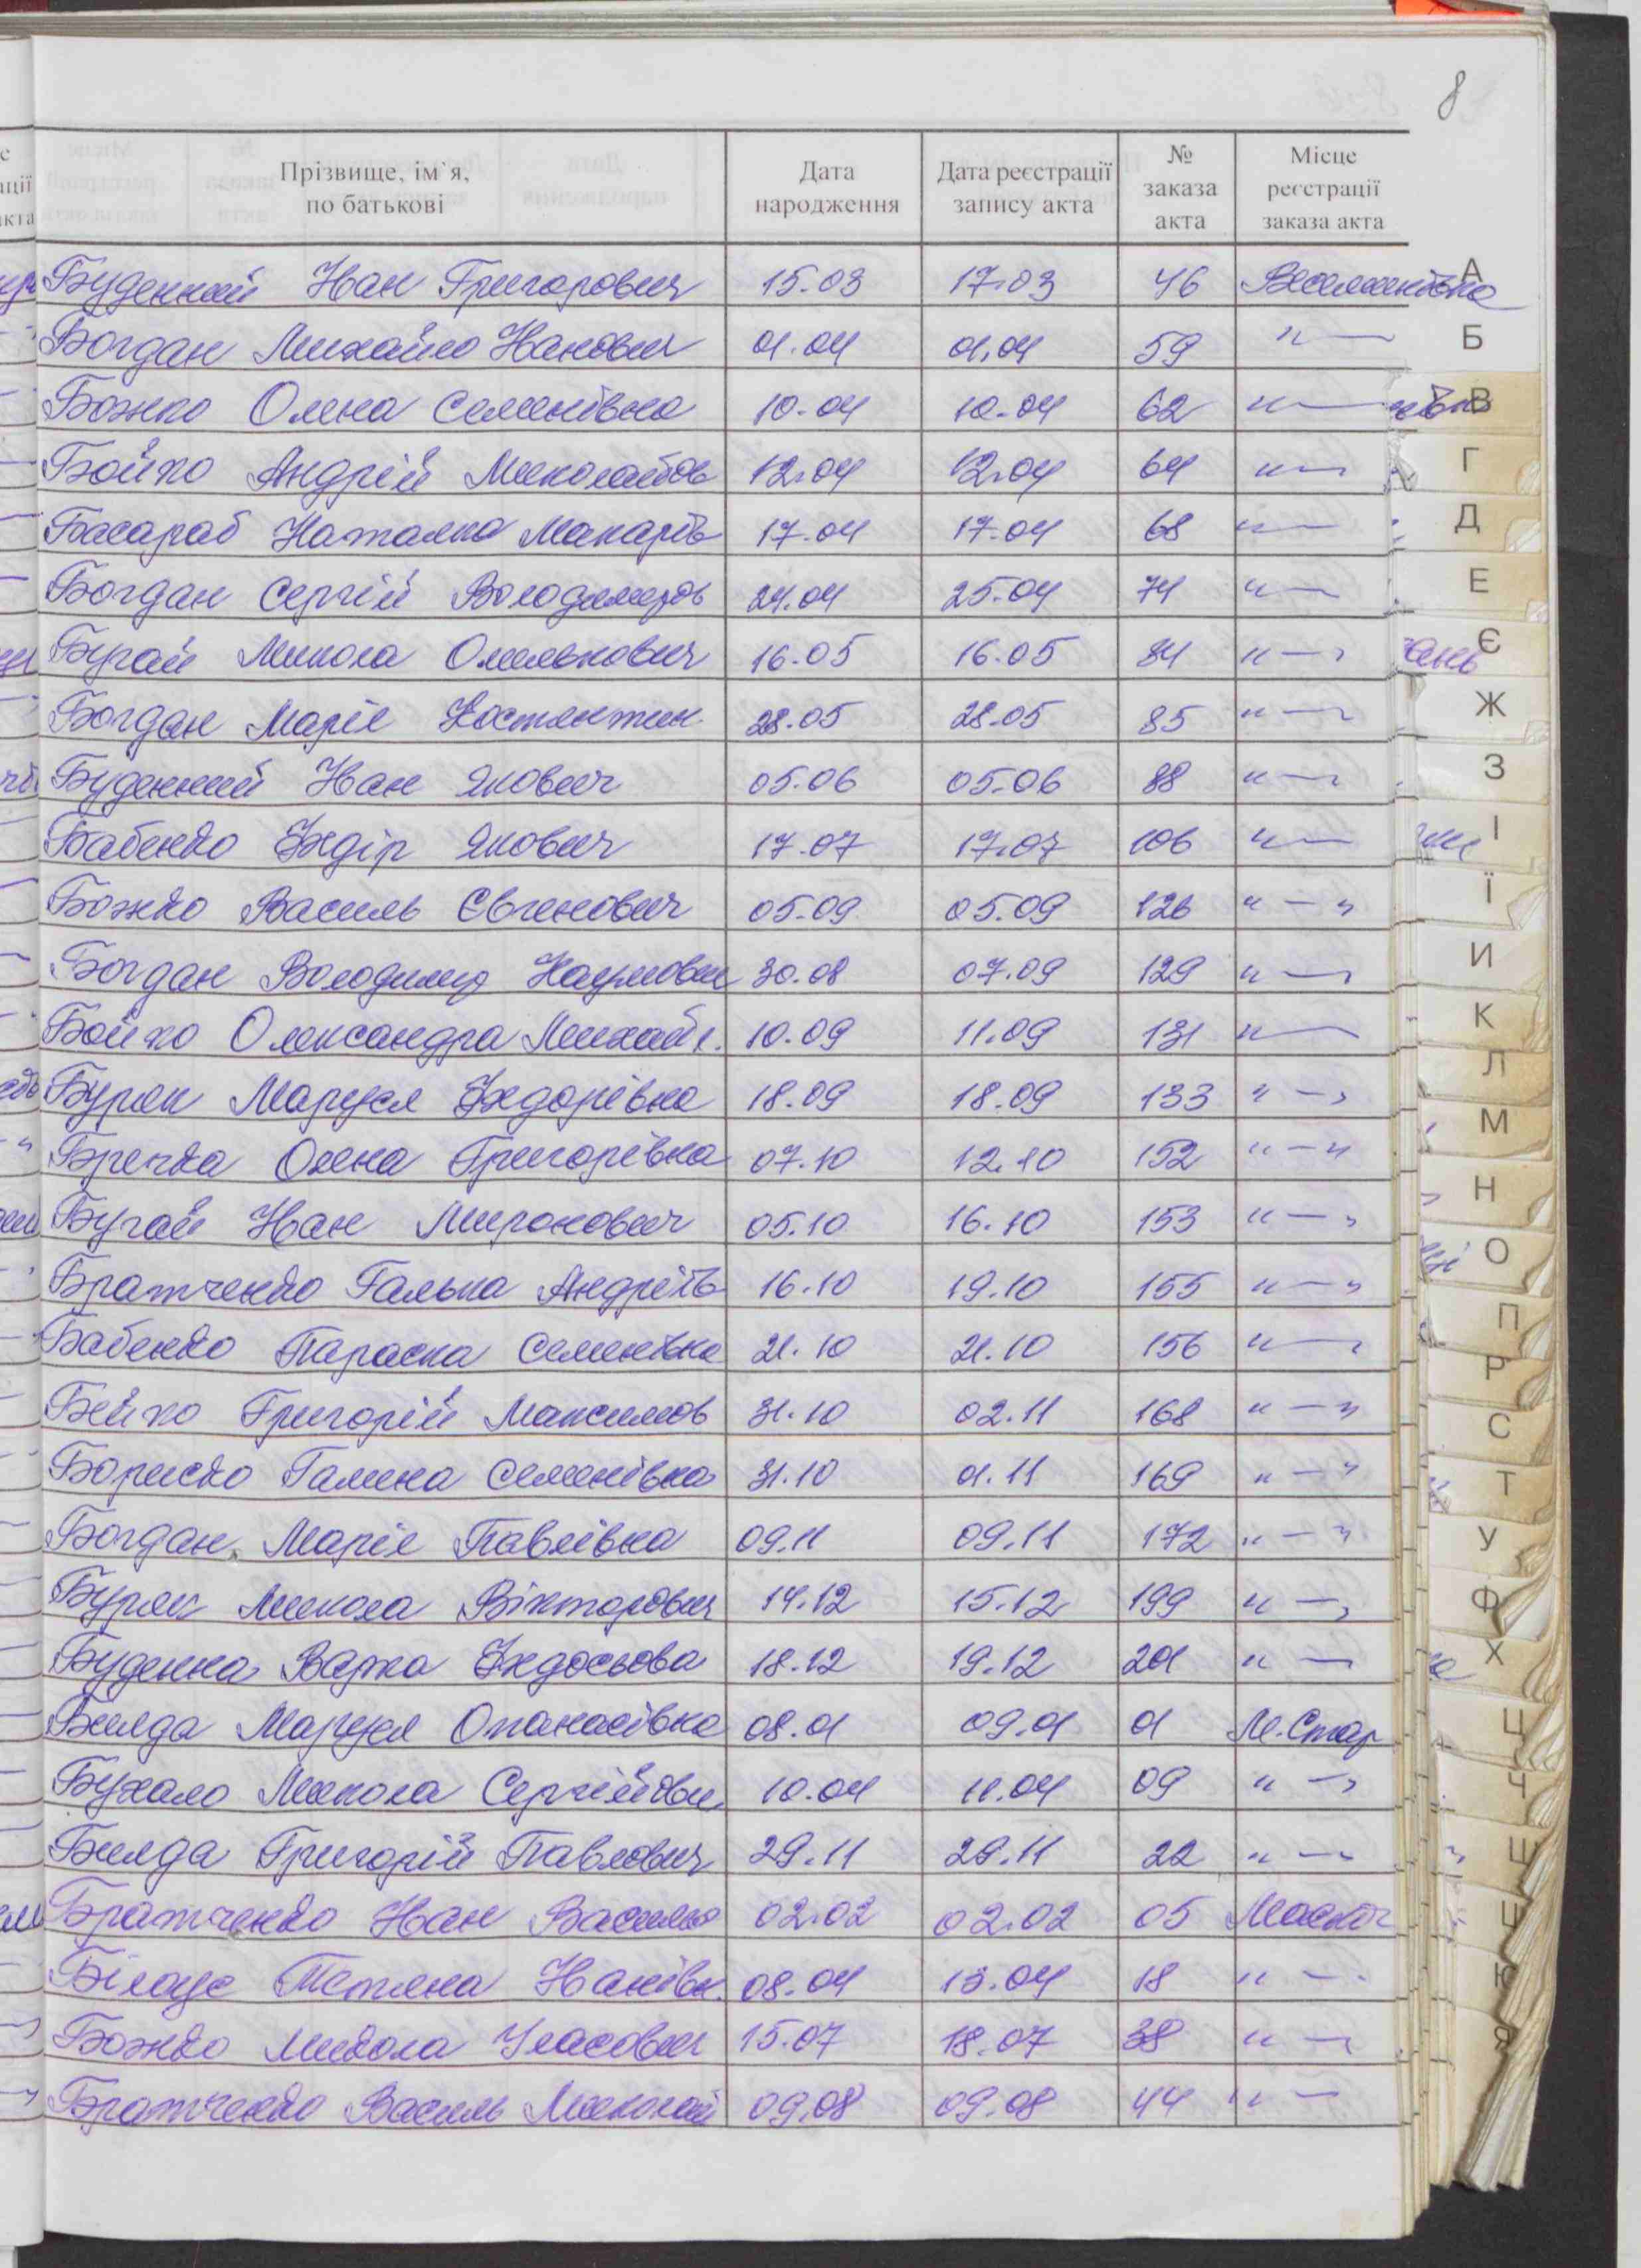 8
Прізвище, ім`я, по батькові Дата народження Дата реєстрації запису акта № заказа акта Місце реєстрації заказа акта
Буденний Іван Григорович 15.03 17.03 46
Богдан Михайло Іванович 01.04 01.04 59 "—
Божко Олена Семенівна 10.04 10.04 62 "—
Бойко Андрій Миколайов 12.04 12.04 64 "—
Басараб Наталка Макарів 17.04 17.04 68 "—
Богдан Сергій Володимиров 24.04 25.04 74 "—
Бугай Микола Омелькович 16.05 16.05 84 "—"
Богдан Марія Костянтин. 28.05 28.05 85 "—"
Буденний Іван Якович 05.06 05.06 88 "—"
Бабенко Федір Якович 17.07 17.07 106 "—
Божко Василь Євгенович 05.09 05.09 126 "—"
Богдан Володимир Наумович 30.08 07.09 129 "—"
Бойко Олександра Михайл. 10.09 11.09 131 "—
Буряк Маруся Федорівна 18.09 18.09 133 "—"
Бречка Олена Григорівна 07.10 12.10 152 "—"
Бугай Іван Миронович 05.10 16.10 153 "—"
Братченко Галька Андріїв 16.10 19.10 155 "—"
Бабенко Параска Семенівна 21.10 21.10 156 "—"
Бейко Григорій Максимов 31.10 02.11 168 "—"
Бориско Галина Семенівна 31.10 01.11 169 "—"
Богдан Марія Павлівна 09.11 09.11 172 "—"
Буряк Микола Вікторович 14.12 15.12 199 "—"
Буденна Варка Федосьова 18.12 19.12 201 "—
Билда Маруся Опанасівна 08.01 09.01 01 М.Стар
Бухало Микола Сергійови 10.04 11.04 09 "—"
Билда Григорій Павлович 29.11 29.11 22 "—
Братченко Іван Василь 02.02 02.02 05
Білоус Тетяна Іванівн. 08.04 13.04 18 "—
Божко Микола Уласович 15.07 18.07 38 "—
Братченко Василь Миколай 09.08 09.08 44 "—
А
Б
В
Г
Д
Е
Є
Ж
З
І
Ї
И
К
Л
М
Н
О
П
Р
С
Т
У
Ф
Х
Ц
Ч
Ш
Щ
Ю
Я